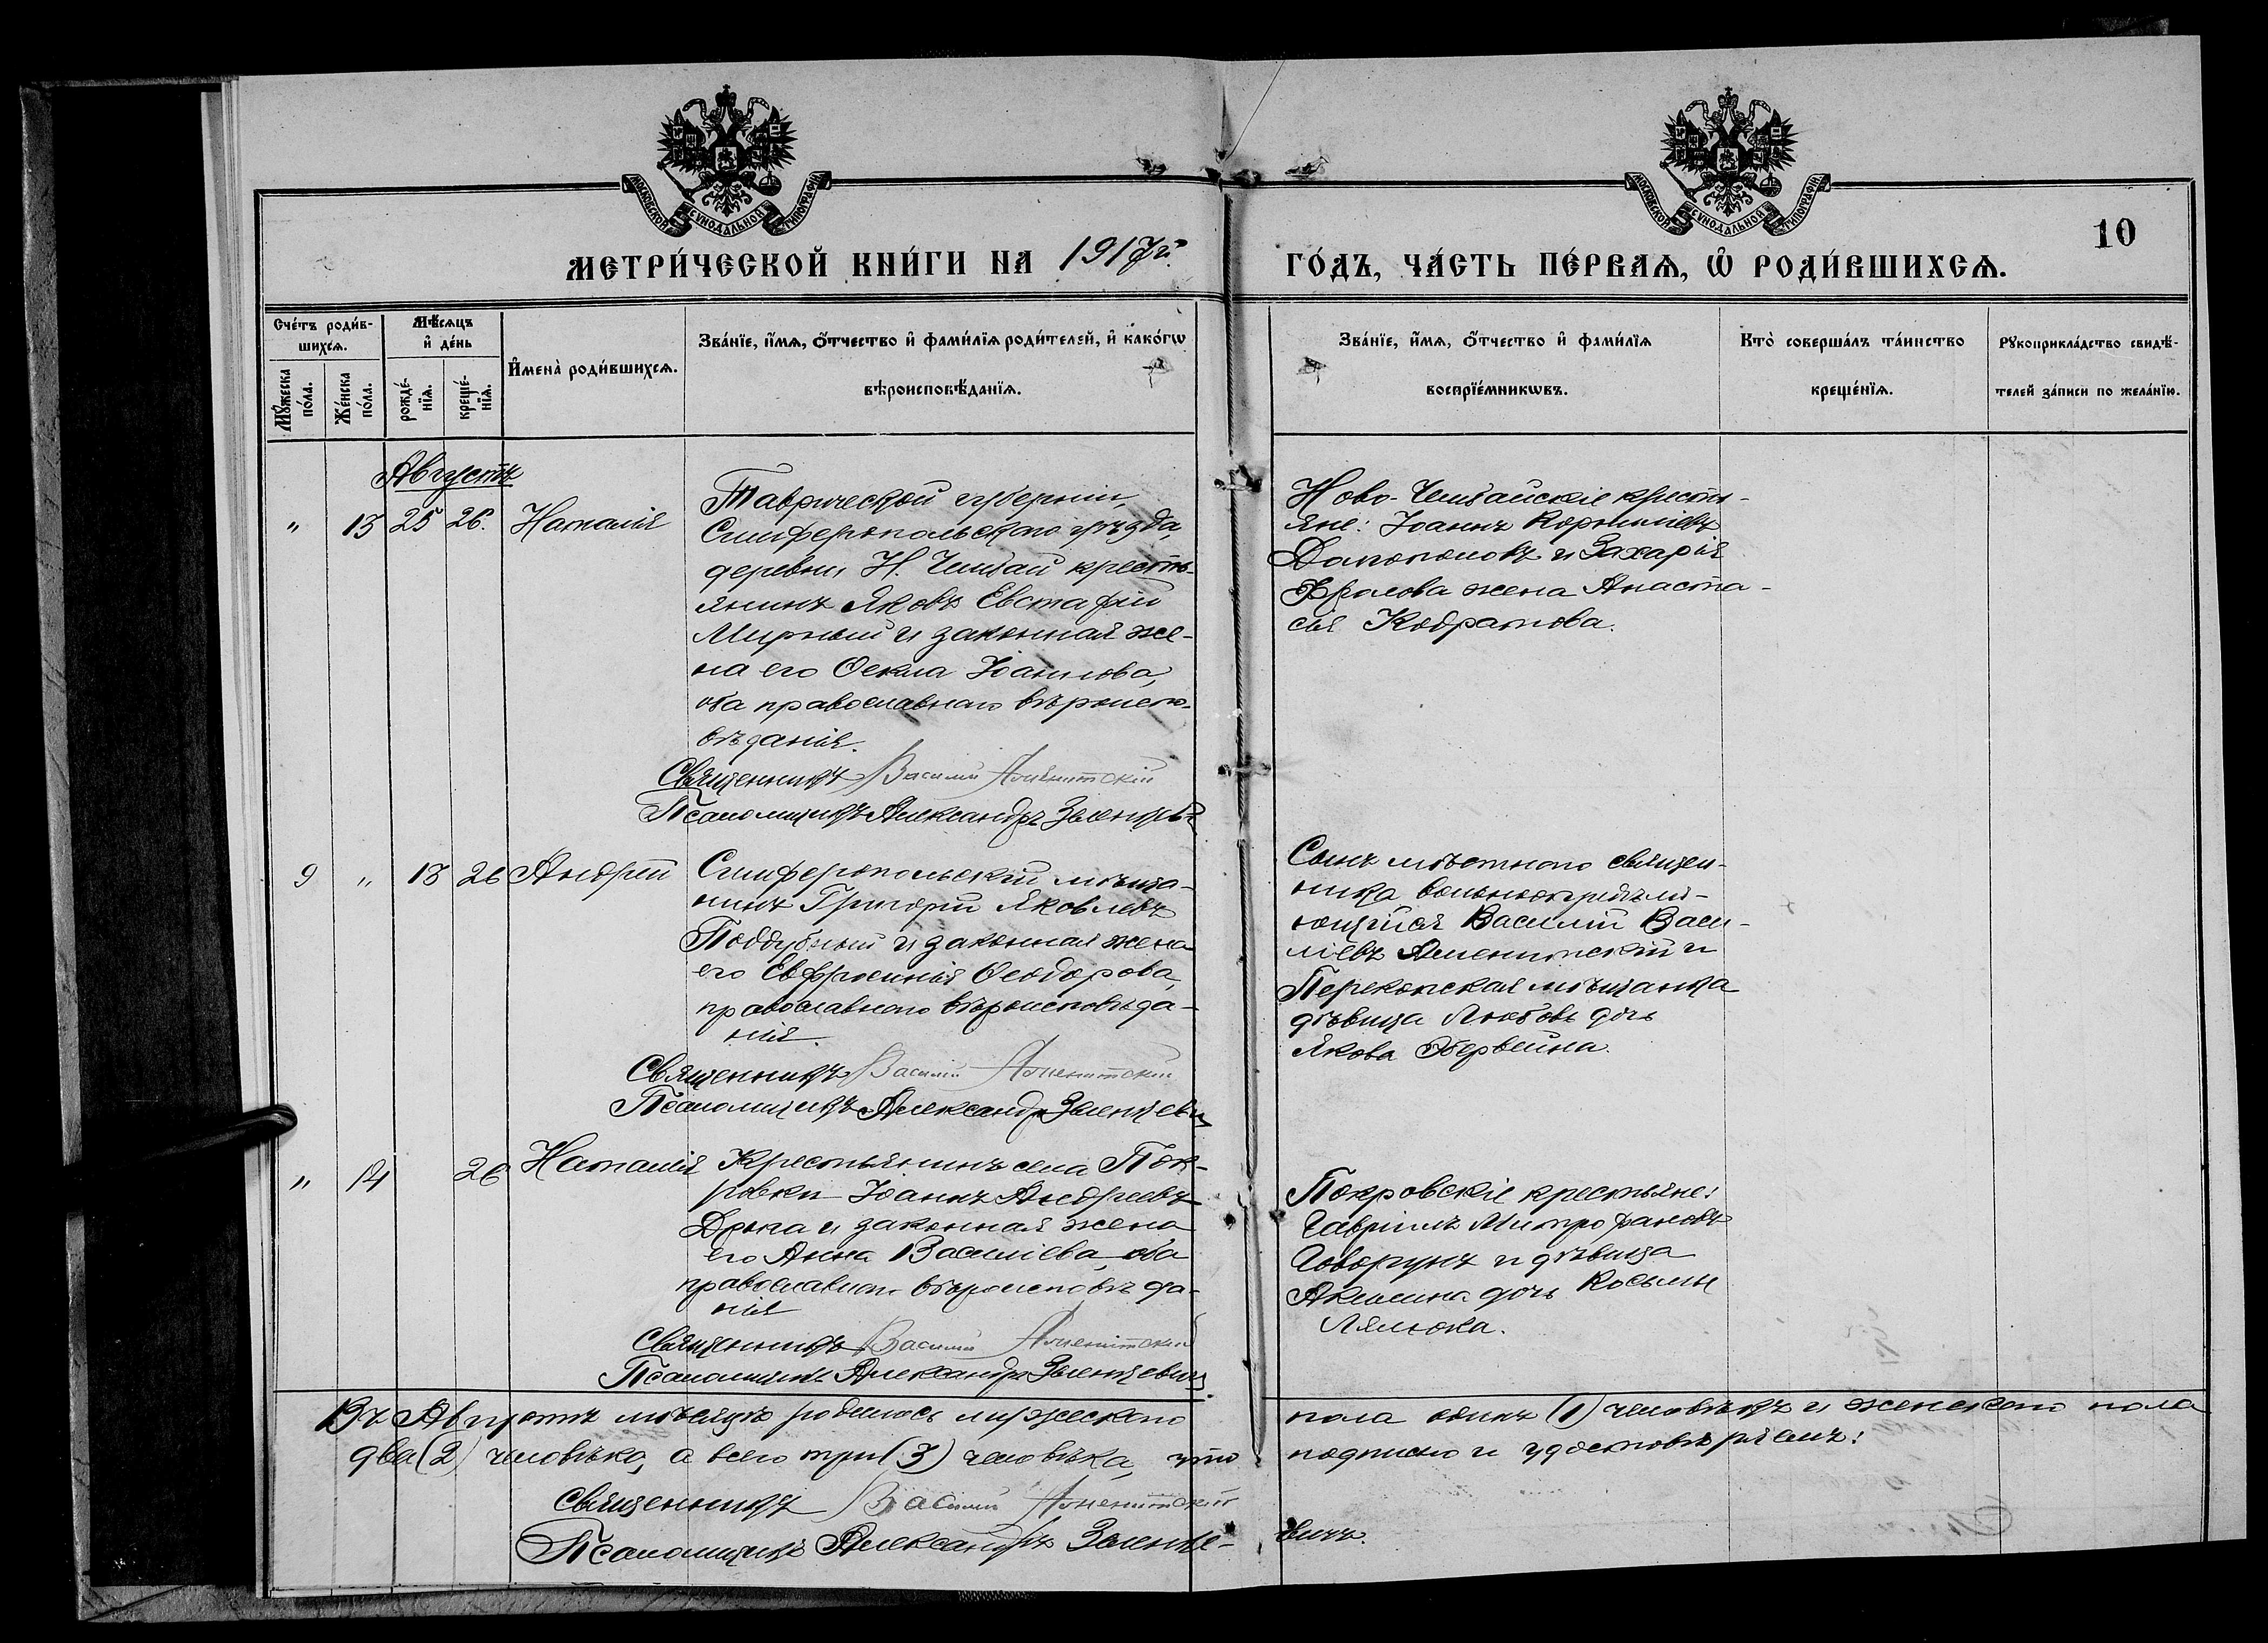 МОСКОВСКОЙ СУНОДАЛЬНОЙ ТИПОГРАФІИ
МОСКОВСКОЙ СУНОДАЛЬНОЙ ТИПОГРАФІИ
10
МЕТРИ́ЧЕСКОЙ КНИ́ГИ НА 1917й.
ГО́ДЪ, ЧА́СТЬ ПЕ́РВАѦ, Ѡ҆ РОДИ́ВШИХСѦ.
Сче́тъ роди́в-
шихсѧ.
Мꙋ́жеска по́ла.
Же́нска по́ла.
Мѣ́сѧцъ
и҆ де́нь
рожде́-
нїѧ.
креще́-
нїѧ.
И҆мена̀ роди́вшихсѧ.
Зва́нїе, и҆́мѧ, ѻ҆́тчество и҆ фами́лїѧ роди́телей, и҆ како́гѡ
вѣроисповѣ́данїѧ.
Зва́нїе, и҆́мѧ, ѻ҆́тчество и҆ фами́лїѧ
воспрїе́мникѡвъ.
Кто̀ соверша́лъ та́инство
креще́нїѧ.
Рꙋкоприкла́дство свидѣ́-
телей за́писи по жела́нїю.
Августъ
" 13 25 26. Наталія
Таврической губерніи,
Симферопольскаго уѣзда,
деревни Н. Чембай кресть-
янинъ Яковъ Евстафій
Мирный и законная же-
на его Ѳекла Іоаннова,
оба православнаго вѣроиспо-
вѣданія.
Священникъ Василий
Псаломщикъ Александръ
Ново-Чембайскіе кресть-
яне: Іоаннъ Корниліевъ
и Захарія
Фролова жена Анаста-
сія Кодратова.
9 " 18 26 Андрей
Симферопольскій мѣща-
нинъ Григорій Яковлевъ
Поддубный и законная жена
его Евфросинія Ѳеодорова,
православнаго вѣроисповѣда-
нія.
Священникъ Василій
Псаломщикъ Александръ
Сынъ мѣстнаго священ-
ника вольноопредѣля-
ющійся Василій Васи-
ліевъ и
Перекопская мѣщанка
дѣвица Любовь дочь
Якова
" 14 26 Наталія
Крестьянинъ села Пок-
ровки Іоаннъ Андреевъ
и законная жена
его Анна Василіева, оба
православнаго вѣроисповѣда-
нія
Священникъ Василий
Псаломщикъ Александръ
Покровскіе крестьяне:
Гавріилъ Митрофановъ
Говорунъ и дѣвица
Акилина дочь Космы
Лялюка.
Въ Августѣ мѣсяцѣ родилось мужескаго
пола одинъ (1) человѣкъ и женскаго пола
два (2) человѣка, а всего три (3) человѣка, что
подписью и удостовѣряемъ:
Священникъ Василий
Псаломщикъ Александръ Зеленке-
вичъ.